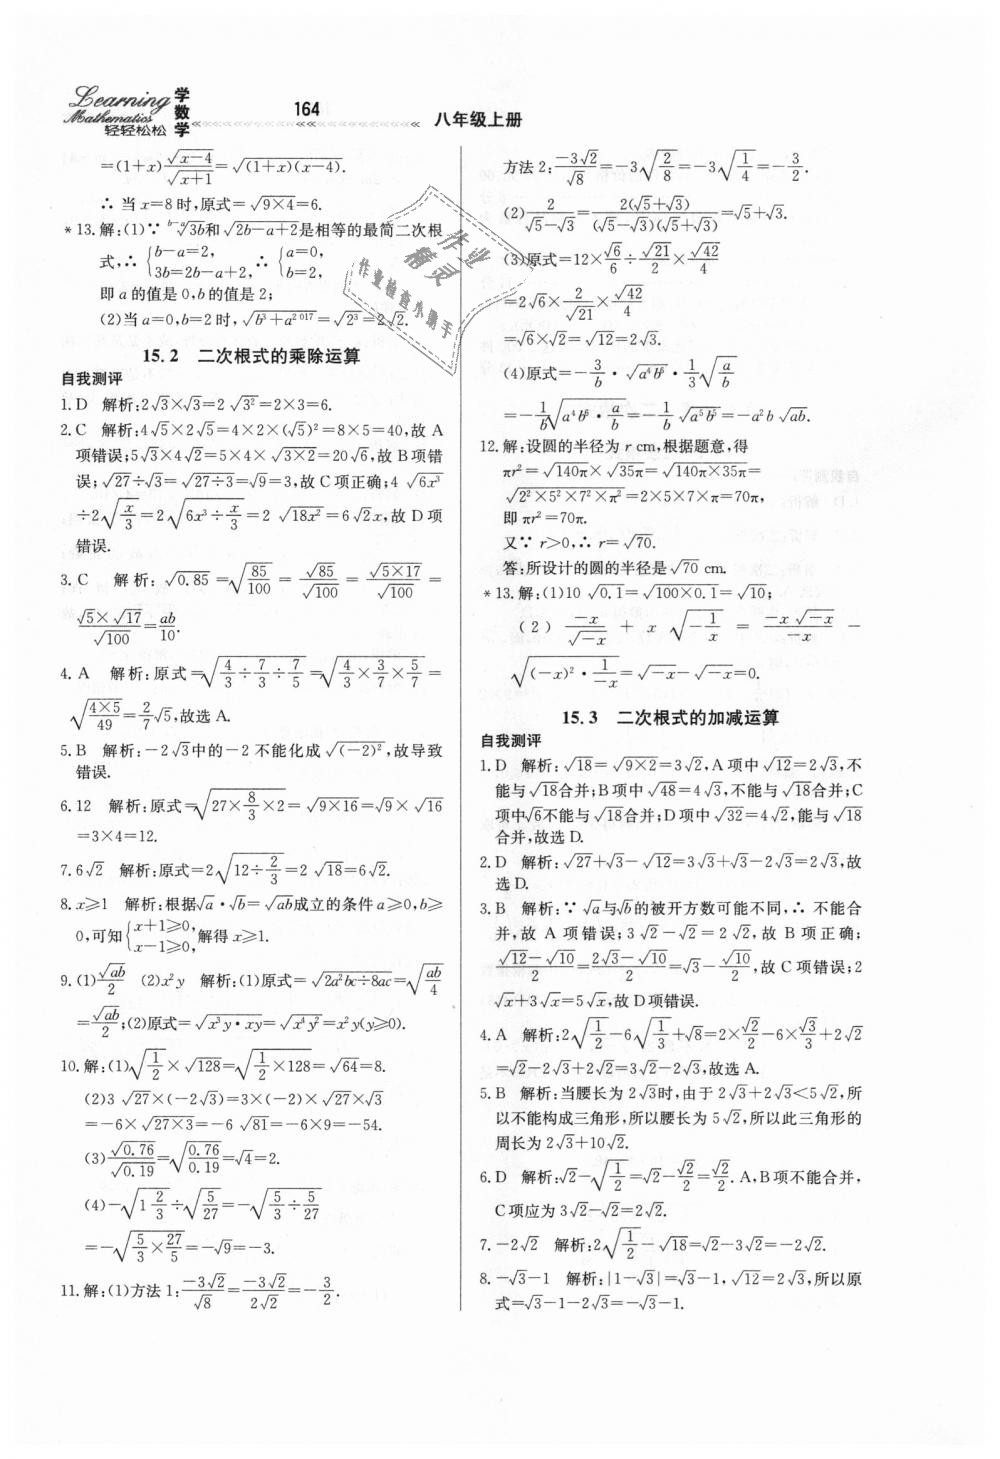 Learning
Mathematics
轻轻松松
学数学
164
八年级上册
=(1+x)√(x-4)/√(x+1)=√((1+x)(x-4)).
∴ 当 x=8时,原式=√(9×4)=6.
*13.解:(1)∵ ᵇ⁻ᵃ√(3b)和√(2b-a+2)是相等的最简二次根
式,∴ {b-a=2, 3b=2b-a+2, ∴ {a=0, b=2,
即 a 的值是 0,b 的值是 2;
(2)当 a=0,b=2 时,√(b³+a²⁰¹⁷)=√(2³)=2√2.
15.2 二次根式的乘除运算
自我测评
1.D 解析:2√3×√3=2√(3²)=2×3=6.
2.C 解析:4√5×2√5=4×2×(√5)²=8×5=40,故 A
项错误;5√3×4√2=5×4×√(3×2)=20√6,故 B 项错
误;√27÷√3=√(27÷3)=√9=3,故 C 项正确;4√(6x³)
÷2√(x/3)=2√(6x³÷x/3)=2√(18x²)=6√2x,故 D 项
错误.
3.C 解析:√0.85=√(85/100)=√85/√100=√(5×17)/√100=
√5×√17/√100=ab/10.
4.A 解析:原式=√(4/3÷7/3÷7/5)=√(4/3×3/7×5/7)=
√(4×5/49)=2/7√5,故选 A.
5.B 解析:-2√3中的-2 不能化成√((-2)²),故导致
错误.
6.12 解析:原式=√(27×8/3×2)=√(9×16)=√9×√16
=3×4=12.
7.6√2 解析:原式=2√(12÷2/3)=2√18=6√2.
8.x≥1 解析:根据√a·√b=√ab成立的条件 a≥0,b≥
0,可知{x+1≥0, x-1≥0,解得 x≥1.
9.(1)√ab/2 (2)x²y 解析:(1)原式=√(2a²bc÷8ac)=√(ab/4)
=√ab/2;(2)原式=√(x³y·xy)=√(x⁴y²)=x²y(y≥0).
10.解:(1)√(1/2)×√128=√(1/2×128)=√64=8.
(2)3√27×(-2√3)=3×(-2)×√27×√3
=-6×√(27×3)=-6√81=-6×9=-54.
(3)√0.76/√0.19=√(0.76/0.19)=√4=2.
(4)-√(1 2/3)÷√(5/27)=-√(5/3÷5/27)
=-√(5/3×27/5)=-√9=-3.
11.解:(1)方法 1:-3√2/√8=-3√2/2√2=-3/2.
方法 2:-3√2/√8=-3√(2/8)=-3√(1/4)=-3/2.
(2)2/(√5-√3)=2(√5+√3)/(√5-√3)(√5+√3)=√5+√3.
(3)原式=12×√6/6÷√21/2×√42/4
=2√6×2/√21×√42/4
=√6×√2=√12=2√3.
(4)原式=-3/b·√(a⁴b⁶)·1/3√(a/b)
=-1/b√(a⁴b⁶·a/b)=-1/b√(a⁵b⁵)=-a²b√ab.
12.解:设圆的半径为 r cm,根据题意,得
πr²=√140π×√35π=√(140π×35π)=
√(2²×5²×7²×π²)=2×5×7×π=70π,
即 πr²=70π.
又∵ r>0,∴ r=√70.
答:所设计的圆的半径是√70 cm.
*13.解:(1)10√0.1=√(100×0.1)=√10;
(2)-x/√-x+x√(-1/x)=-x√-x/-x-
√((-x)²·1/-x)=√-x-√-x=0.
15.3 二次根式的加减运算
自我测评
1.D 解析:√18=√(9×2)=3√2,A 项中√12=2√3,不
能与√18合并;B 项中√48=4√3,不能与√18合并;C
项中√6不能与√18合并;D 项中√32=4√2,能与√18
合并,故选 D.
2.D 解析:√27+√3-√12=3√3+√3-2√3=2√3,故
选 D.
3.B 解析:∵ √a与√b的被开方数可能不同,∴ 不能合
并,故 A 项错误;3√2-√2=2√2,故 B 项正确;
(√12-√10)/2=(2√3-√10)/2=√3-√10/2,故 C 项错误;2
√x+3√x=5√x,故 D 项错误.
4.A 解析:2√(1/2)-6√(1/3)+√8=2×√2/2-6×√3/3+2√2
=√2-2√3+2√2=3√2-2√3,故选 A.
5.B 解析:当腰长为 2√3时,由于 2√3+2√3<5√2,所
以不能构成三角形,所以腰长为 5√2,所以此三角形的
周长为 2√3+10√2.
6.D 解析:√2-√(1/2)=√2-√2/2=√2/2.A、B 项不能合并,
C 项应为 3√2-√2=2√2.
7.-2√2 解析:2√(1/2)-√18=√2-3√2=-2√2.
8.-√3-1 解析:|1-√3|=√3-1,√12=2√3,所以原
式=√3-1-2√3=-√3-1.
作业
精灵
作业检查小助手